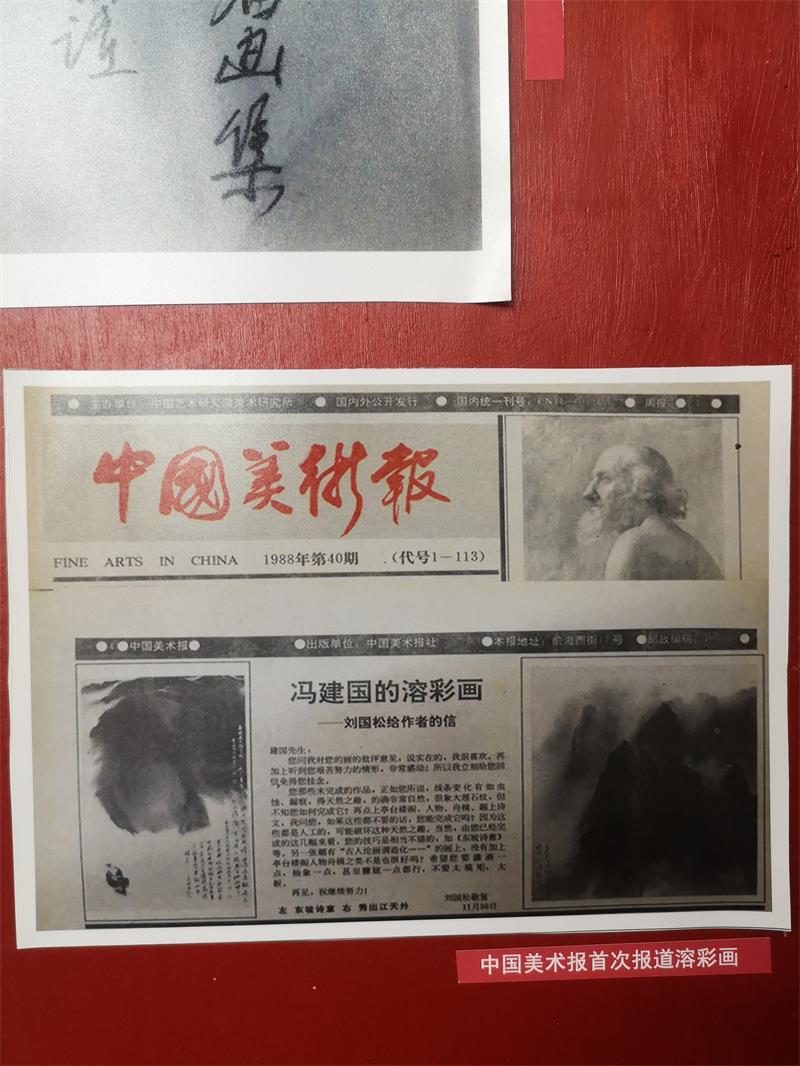 画集
●主办单位：中国艺术研究院美术研究所 ●国内外公开发行 ●国内统一刊号：CN11 ●周报●
中國美術報
FINE ARTS IN CHINA 1988年第40期 （代号1—113）
●4●中国美术报● ●出版单位：中国美术报社 ●本报地址：前海西街17号 ●邮政编码：
冯建国的溶彩画
——刘国松给作者的信
建国先生：
您问我对您的画的批评意见，说实在的，我很喜欢。再
加上听到您艰苦努力的情形，非常感动！所以我立刻给您回
信免得您挂念。
您那些未完成的作品，正如您所说，线条变化有如虫
蚀、漏痕，得天然之趣。的确非常自然，很象大理石纹。但
不知您如何完成它？再点上亭台楼阁、人物、舟楫、题上诗
文，我问您，如果这些都不要的话，您能完成它吗？因为这
些都是人工的，可能破坏这种天然之趣。当然，由您已经完
成的这几幅来看，您的技巧是相当不错的，如《东坡诗意》
等。另一张题有“古人论画谓造化……”的画上，没有加上
亭台楼阁人物舟楫之类不是也很好吗？希望您要潇洒一
点，抽象一点，甚至朦胧一点都行，不要太规矩，太
板。
再见，祝继续努力！
刘国松敬复
11月30日
左 东坡诗意 右 秀出江天外
中国美术报首次报道溶彩画